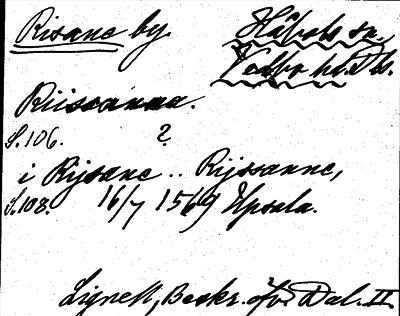 Risane by. Håbols sn,
Vedbo hd. Ds.
Riissanna.
S. 106. ?
i Rijsane .. Rijssanne,
S. 108. 16/7 1569 Upsala.
Lignell, Beskr. öfv. Dal. II.